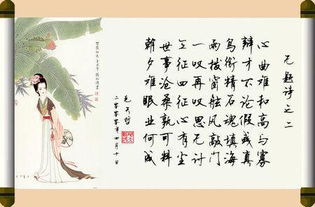 无题诗之二
心曲难和高与寡
辩才不论假或真
鸟衔精石魂填海
雨 窗 风敲门
一叹再叹思无计
征四征心有尘
世事沧桑孰可料
朝夕难眠业何成
毛天哲
二零零 年四月十日